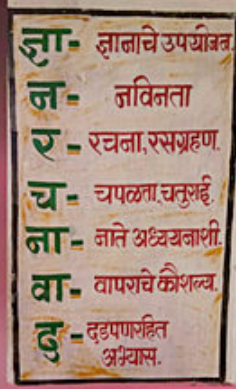 ज्ञा- ज्ञानाचे उपयोजन.
न- नविनता
र - रचना, रसग्रहण.
च- चपळता, चतुराई.
ना- नाते अध्ययनाशी.
वा- वापराचे कौशल्य.
द -दडपणरहित
अभ्यास.